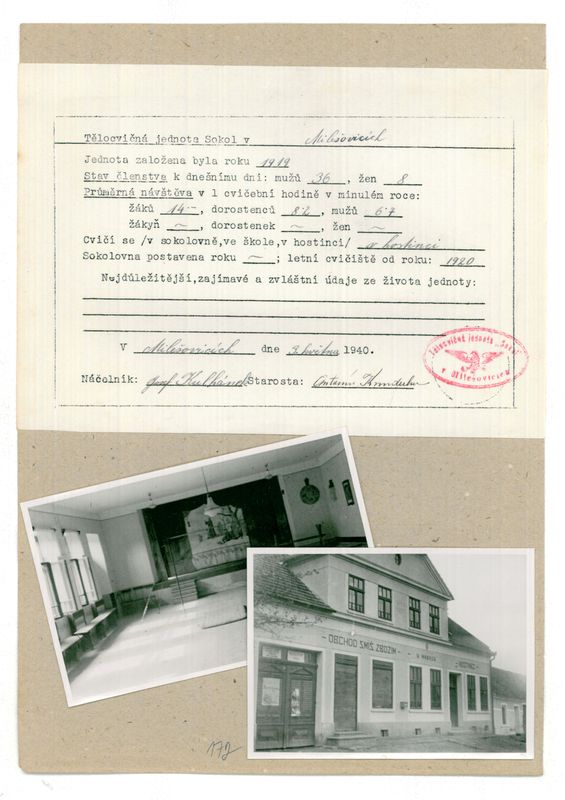 Tělocvičná jednota Sokol v Milešovicích
Jednota založena byla roku 1919
Stav členstva k dnešnímu dni: mužů 36, žen 8
Průměrná návštěva v 1 cvičební hodině v minulém roce:
žáků 14-, dorostenců 8·2, mužů 6·7
žákyň ~, dorostenek ~, žen ~
Cvičí se /v sokolovně,ve škole,v hostinci/ v hostinci
Sokolovna postavena roku ~; letní cvičiště od roku: 1920
Nejdůležitější,zajímavé a zvláštní údaje ze života jednoty:
V Milešovicích dne 3. května 1940.
Náčolník: Josef Kulhánek Starosta: Antonín
Tělocvičná jednota „Sokol"
v Milešovicích
OBCHOD SMÍŠ. ZBOŽÍM
HOSTINEC
172